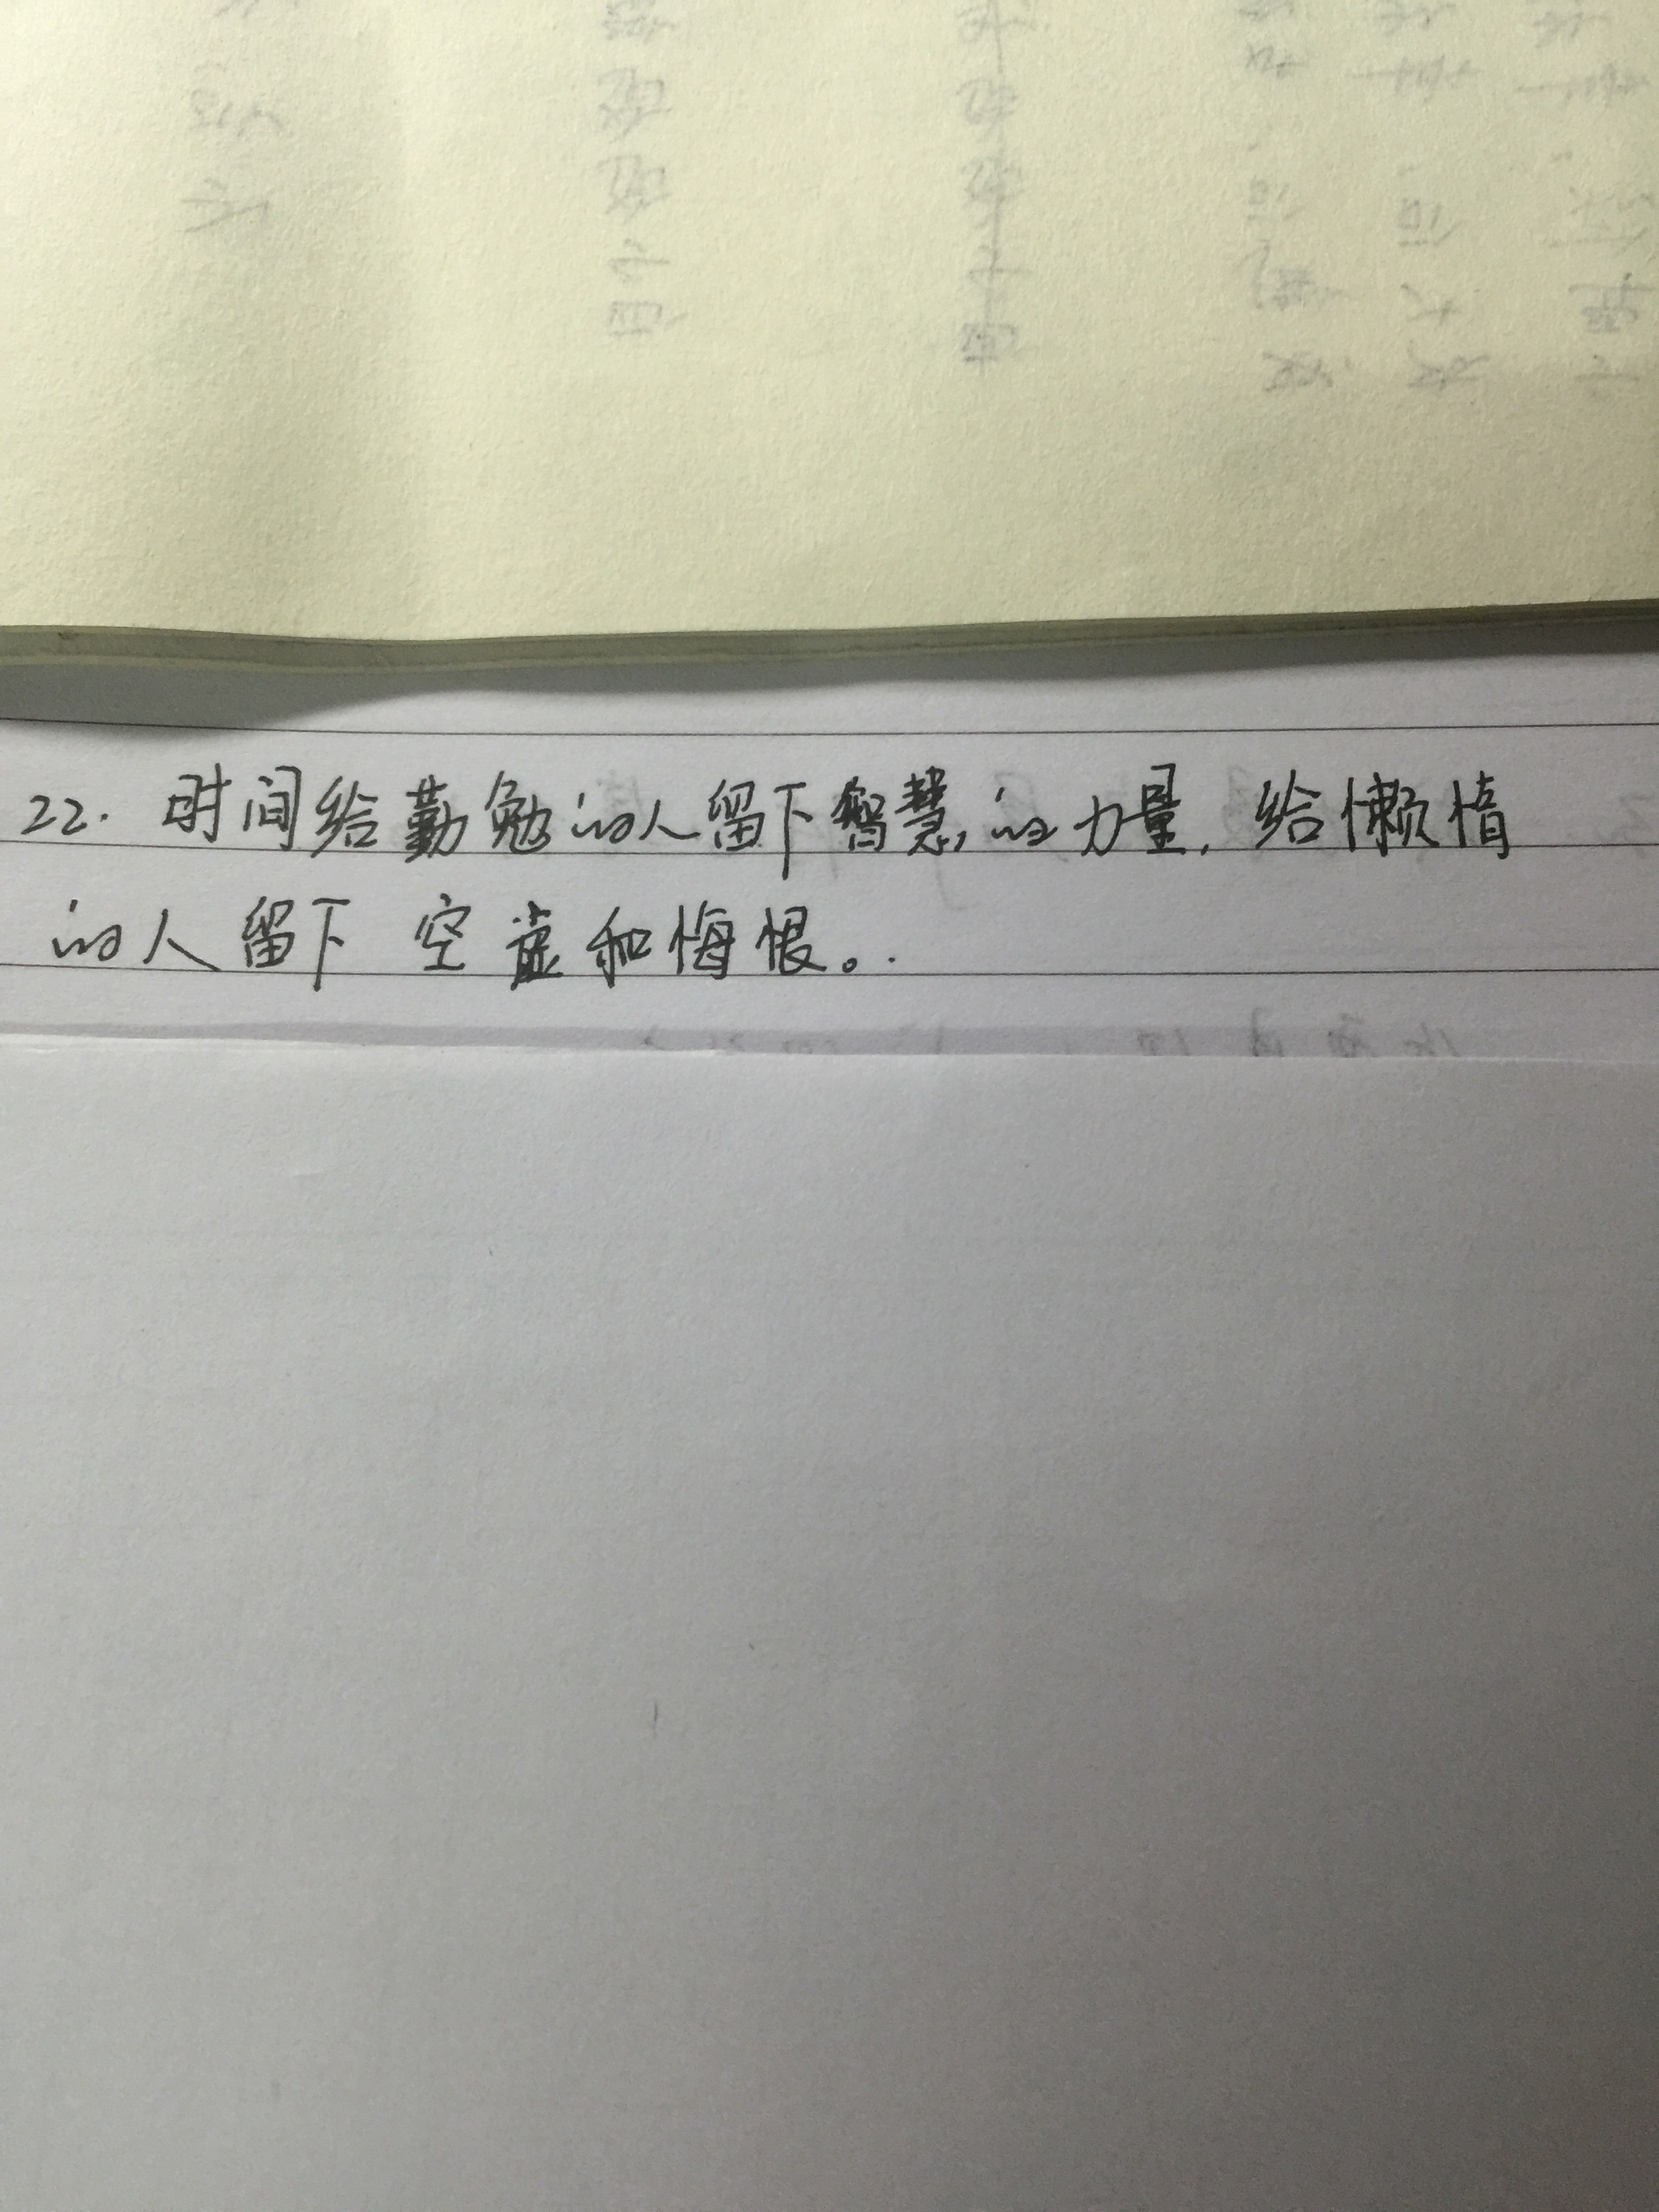 22. 时间给勤勉的人留下智慧的力量, 给懒惰
的人留下空虚和悔恨。.